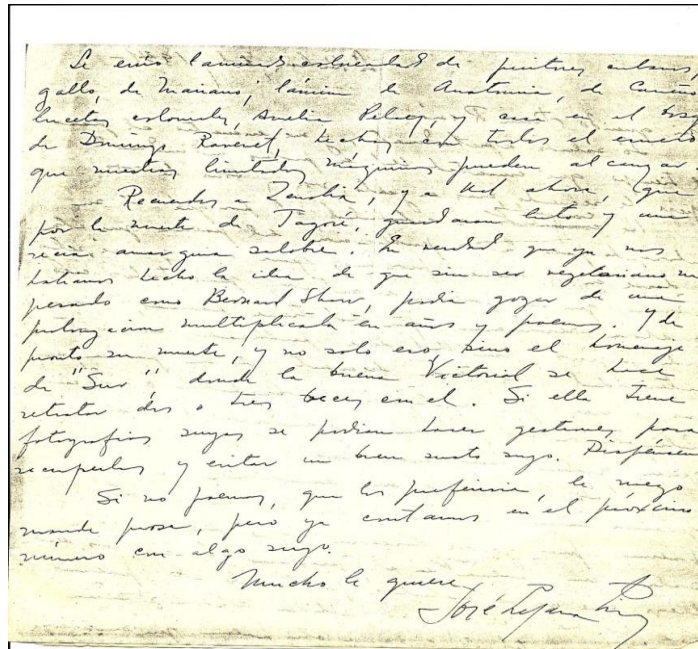 Le envío láminas coloreadas de pintores cubanos,
gallo, de Mariano, lámina de Anatomía, de Carreño
Amelia Peláez, y así en el
de Domingo Ravenet, hechas con todo el esmero
que nuestras limitadas máquinas pueden alcanzar.
Recuerdos a Zenobia, y a Ud ahora, que
por la muerte de Tagore, guardaran luto y una
recia amargura salobre. En verdad que ya nos
habíamos hecho la idea de que sin ser vegetariano ni
pesado como Bernard Shaw, podía gozar de una
prolongación multiplicada en años y poemas. Y de
pronto su muerte, y no solo eso, sino el homenaje
de "Sur", donde la buena Victoria se hace
retratar dos o tres veces en el. Si ella tiene
fotografías suyas se podían hacer gestiones para
recuperarlas y evitar un buen susto suyo.
Si no poemas, que los preferiría, le ruego
mande prosa, pero ya contamos en el próximo
número con algo suyo.
Mucho le quiere,
José Lezama Lima